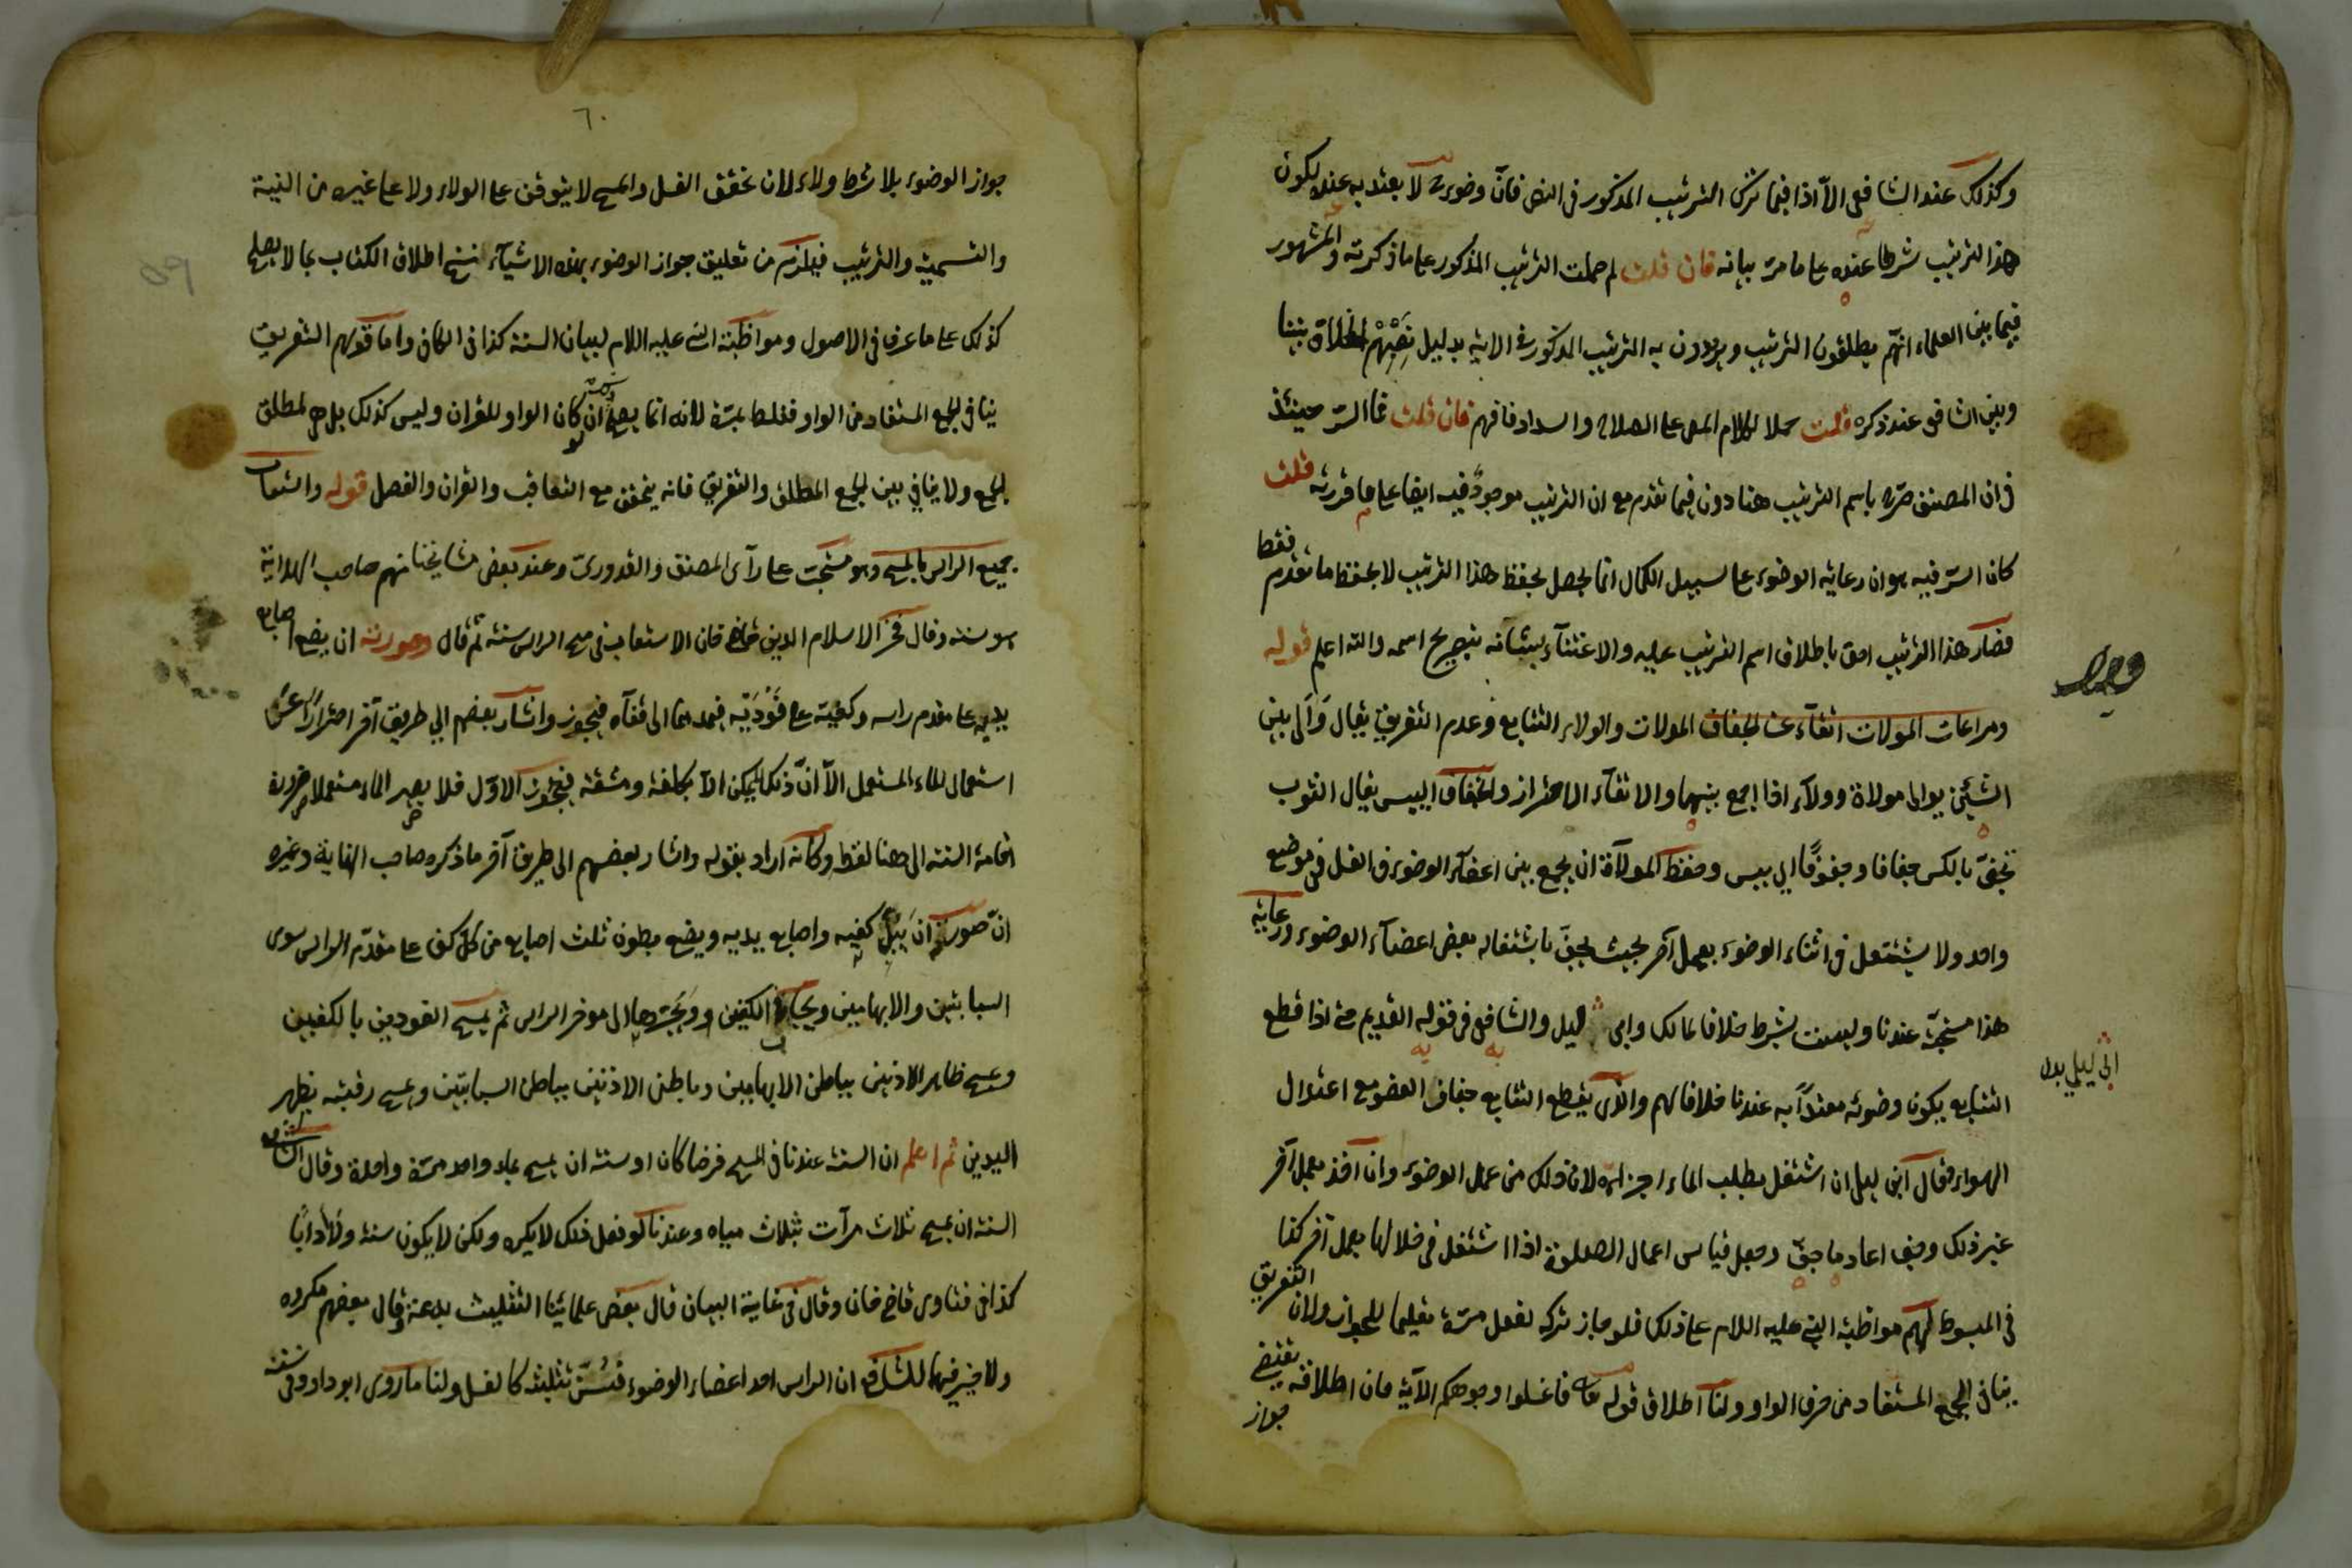 وكذلك عند الشافعي الا اذا فيما ترك الترتيب المذكور في النص فان وضوءه لا يعتد به عنده لكون
هذا الترتيب شرطا عنده على ما مر بيانه فان قلت لم حملت الترتيب المذكور على ما ذكرته والمشهور
فيما بين العلماء انهم يطلقون الترتيب ويريدون به الترتيب المذكور في الاية بدليل نصبهم الخلاف بيننا
وبين الشافعي عند ذكره قلت حملا لكلام المص على الصلاح والسداد فافهم فان قلت فما السر حينئذ
في ان المصنف صرح باسم الترتيب هنا دون فيما تقدم مع ان الترتيب موجود فيه ايضا على ما قررته قلت
كان السر فيه هو ان رعاية الوضوء على سبيل الكمال انما يحصل بحفظ هذا الترتيب لا بحفظ ما تقدم فقط
فصار هذا الترتيب احق باطلاق اسم الترتيب عليه والاعتناء بشانه بتصريح اسمه والله اعلم قوله
ومراعات المولات اتقاء عن الجفاف المولات والولاء التتابع وعدم التفريق يقال والى بين
الشيئين يوالى مولاة وولاء اذا جمع بينهما والاتقاء الاحتراز والجفاف اليبس يقال الثوب
يجف بالكسر جفافا وجفوفا اي يبس وحفظ المولاة ان يجمع بين اعضاء الوضوء في الغسل في موضع
واحد ولا يشتغل في اثناء الوضوء بعمل آخر بحيث يجف باشتغاله بعض اعضاء الوضوء ورعاية
هذا مستحبة عندنا وليست بشرط خلافا لمالك وابي ليلى والشافعي في قوله القديم حتى اذا قطع
ابن ليلى بدل
التتابع يكون وضوئه معتدا به عندنا خلافا لهم والذي يقطع التتابع جفاف العضو مع اعتدال
الهواء فقال ابن ليلى ان اشتغل بطلب الماء اجزاه لان ذلك من عمل الوضوء وان اخذ بعمل آخر
غير ذلك وجف اعاد ما جف وجعل قياس اعمال الصلوة اذا اشتغل في خلالها بعمل آخر كذا
في المبسوط لهم مواظبة النبي عليه السلام على ذلك فلو جاز تركه لفعل مرة تعليما للجواز ولان التفريق
ينافي الجمع المستفاد من حرف الواو ولنا اطلاق قوله تعالى فاغسلوا وجوهكم الآية فان اطلاقه يقتضي
جواز
٦٠
59
جواز الوضوء بلا شرط ولاء لان تحقق الغسل والمسح لا يتوقف على الولاء ولا على غيره من النية
والتسمية والترتيب فيلزم من تعليق جواز الوضوء بهذه الاشياء نسخ اطلاق الكتاب بما لا يصلح
كذلك على ما عرف في الاصول ومواظبة النبي عليه السلام لبيان السنة كذا في الكافي واما قولهم التفريق
ينافي الجمع المستفاد من الواو فغلط بمرة لانه انما يصح ان لو كان الواو للقران وليس كذلك بل هي لمطلق
الجمع ولا ينافي بين الجمع المطلق والتفريق فانه يتحقق مع التعاقب والقران والفصل قوله واستيعاب
جميع الراس بالمسح وهو مستحب على رآى المصنف والقدوري وعند بعض مشايخنا منهم صاحب الهداية
هو سنة وقال فخر الاسلام الدين قاضي خان الاستيعاب في مسح الراس سنة ثم قال وصورته ان يضع اصابع
يديه على مقدم راسه وكفيه على فوديه فيمدهما الى قفاه فيجوز واشار بعضهم الى طريق آخر احترازا عن
استعمال الماء المستعمل الا ان ذلك لا يمكن الا بكلفة ومشقة فيجوز الاول فلا يصير الماء مستعملا ضرورة
اقامة السنة الى هنا لفظه وكانه اراد بقوله واشار بعضهم الى طريق آخر ما ذكره صاحب النهاية وغيره
ان صورته ان يبل كفيه واصابع يديه ويضع بطون ثلث اصابع من كل كف على مقدم الراس سوى
السبابتين والابهامين ويجافى الكفين ويجرهما الى موخر الراس ثم يمسح الفودين بالكفين
ويمسح ظاهر الاذنين بباطن الابهامين وباطن الاذنين بباطن السبابتين ويمسح رقبته بظهر
اليدين ثم اعلم ان السنة عندنا في المسح فرضا كان او سنة ان يمسح بماء واحد مرة واحدة وقال الشافعي
السنة ان يمسح ثلاث مرات بثلاث مياه وعندنا لو فعل ذلك لا يكره ولكن لا يكون سنة ولا دابا
كذا في فتاوى قاضي خان وقال في غاية البيان قال بعض علمائنا التثليث بدعة وقال بعضهم مكروه
ولا خير فيها للشافعي ان الراس احد اعضاء الوضوء فيسن تثليثه كالغسل ولنا ما روى ابو داود في سننه